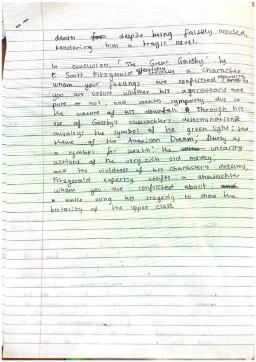 death despite being falsely accused,
rendering him a tragic novel.
In conclusion, "The Great Gatsby" by
F. Scott Fitzgerald creates a character
whom your feelings are conflicted
you are unsure whether his aspirations are
pure or not, and creates sympathy due to
the nature of his downfall. Through his
use of Gatsby's character: determination &
the symbol of the green light; the
theme of the American Dream; Daisy as
a symbol for wealth; the uncaring
actions of the very rich old money;
and the wildness of his character's dreams,
Fitzgerald expertly crafts a character
whom you are conflicted about,
while using his tragedy to show the
brutality of the upper class